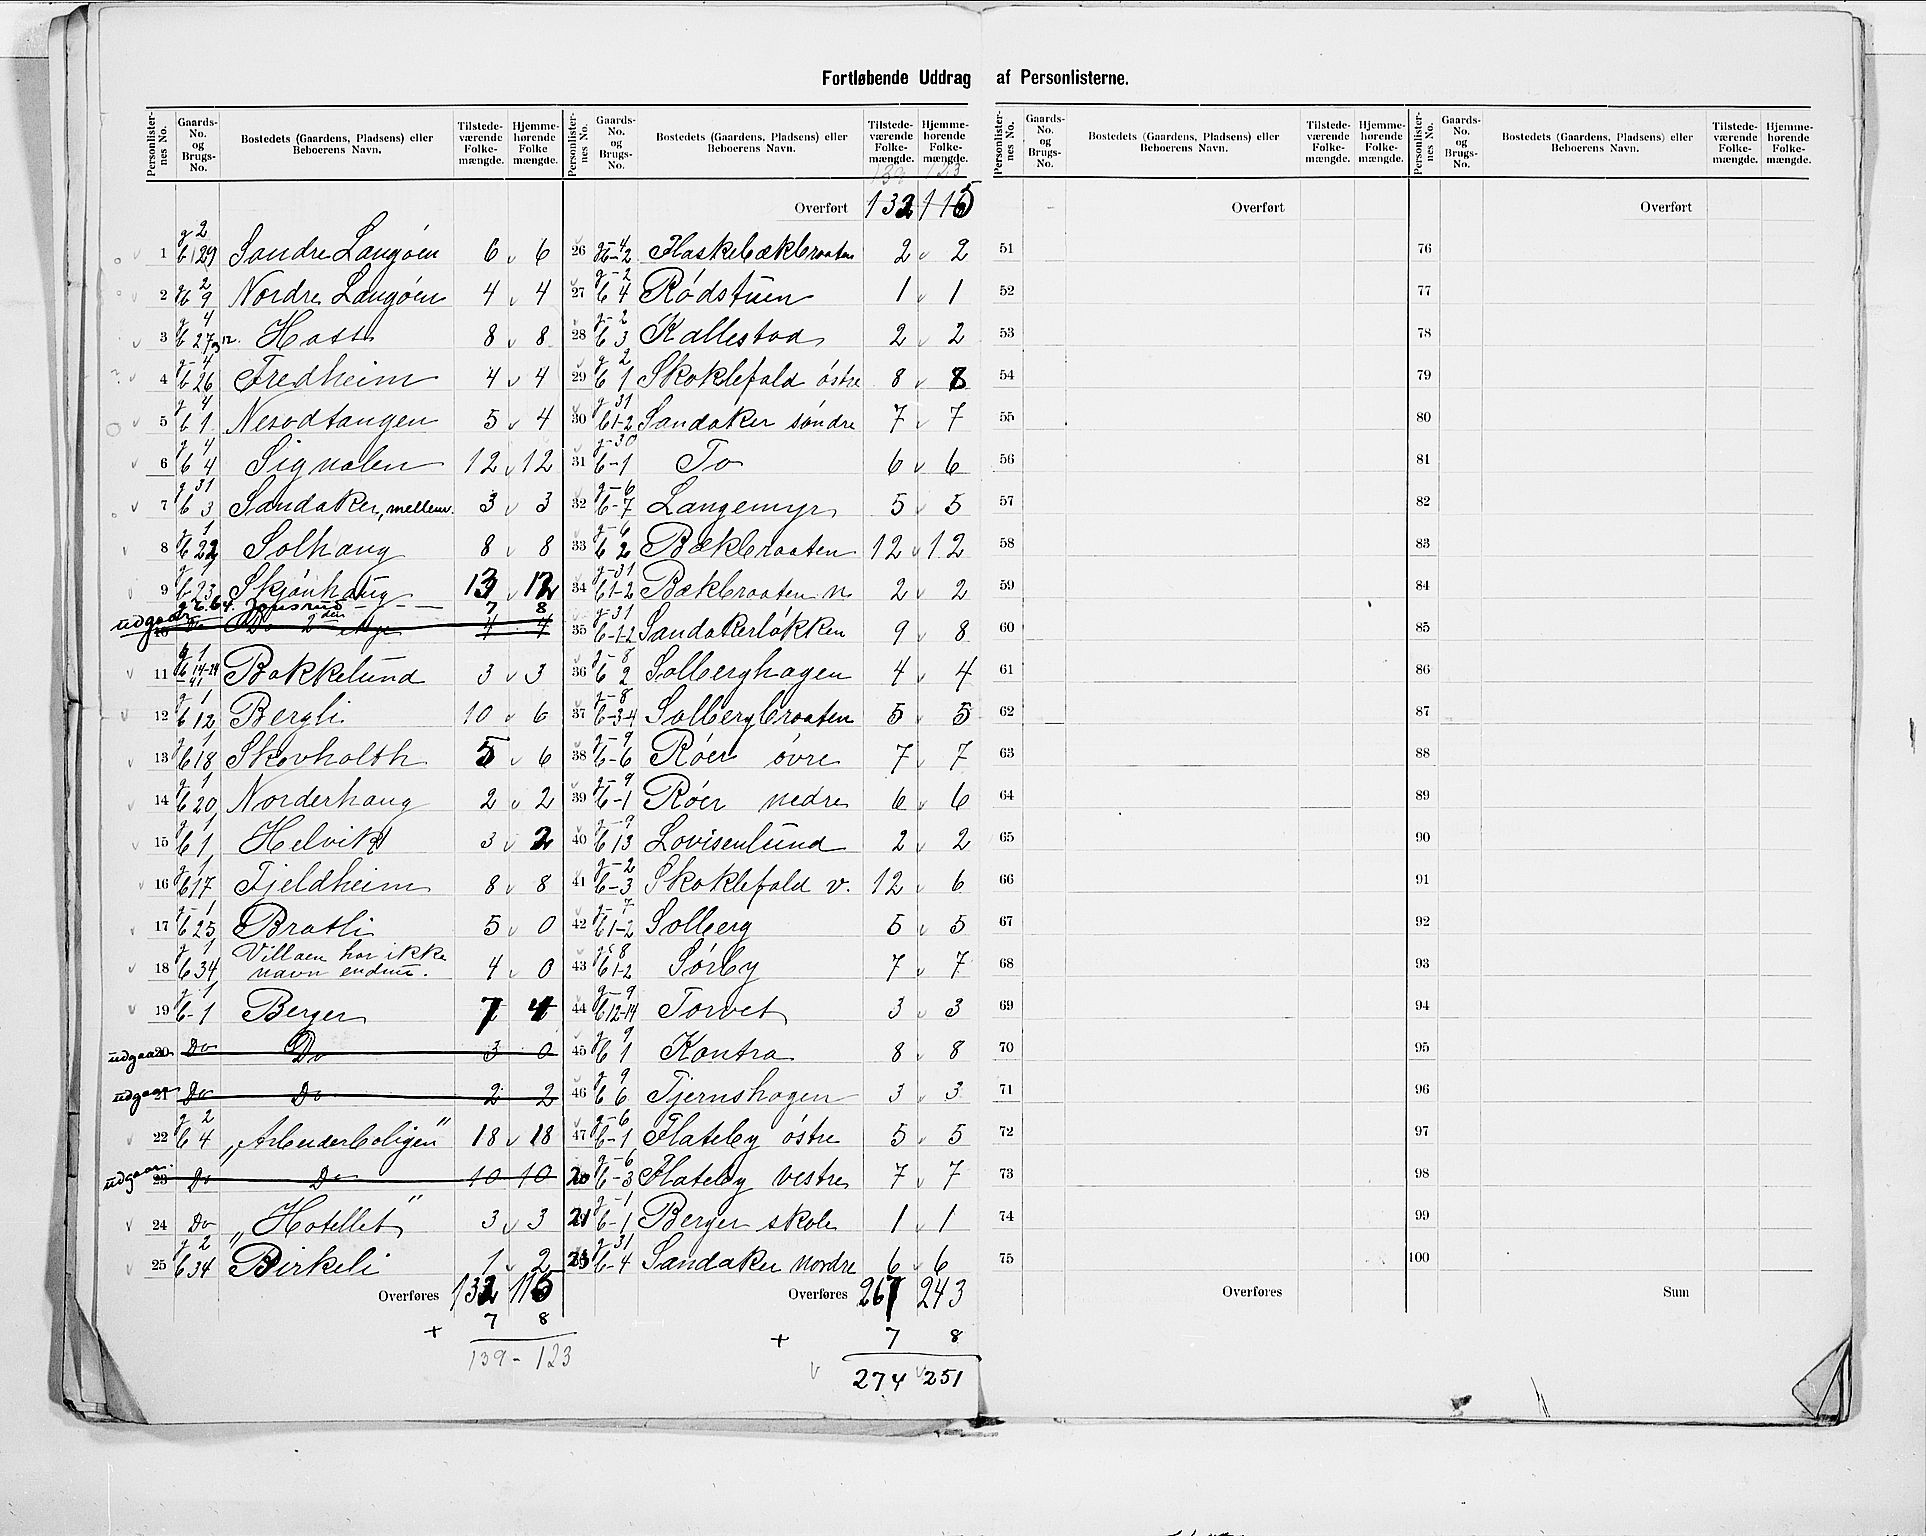 Fortløbende Uddrag af Personlisterne.
Personlister-nes No. | Gaards-No. og Brugs-No. | Bostedets (Gaardens, Pladsens) eller Beboerens Navn. | Tilstede-værende Folke-mængde. | Hjemme-hørende Folke-mængde.
1 g 2 b 129 Søndre Langøen 6 6
2 g 2 b 9 Nordre Langøen 4 4
3 g 4 b 27 8 8
4 g 4 b 26 Fredheim 4 4
5 g 4 b 1 Nesodtangen 5 4
6 g 4 b 4 Signalen 12 12
7 g 31 b 3 Sandaker, mellem. 3 3
8 g 1 b 22 Solhaug 8 8
9 g 1 b 23 Skjønhaug 13 12
g 2. b 4. Jonsrud - - - 7 8
udgaar 10 Do Do 2den 4 4
11 g 1 b 14-24 41 Bakkelund 3 3
12 g 1 b 12 Bergli 10 6
13 g 1 b 18 Skovholth 5 6
14 g 1 b 20 Norderhaug 2 2
15 g 1 b 1 Helvik 3 2
16 g 1 b 17 Fjeldheim 8 8
17 g 1 b 25 Bratli 5 0
18 g 1 b 34 Villaen har ikke navn endnu. 4 0
19 g 1 b 1 Berger 7 4
udgaar 20 Do Do 3 0
udgaar 21 Do Do 2 2
22 g 2 b 4 „Arbeiderboligen“ 18 18
udgaar. 23 Do Do 10 10
24 Do „Hotellet“ 3 3
25 g 2 b 34 Birkeli 1 2
Overføres 132 115
+ 7 8
139 - 123
Personlister-nes No. | Gaards-No. og Brugs-No. | Bostedets (Gaardens, Pladsens) eller Beboerens Navn. | Tilstede-værende Folke-mængde. | Hjemme-hørende Folke-mængde.
139 123
Overført 132 115
26 g-4 b-2 Flaskebækbraaten 2 2
27 g-2 b 4 Rødstuen 1 1
28 g-2 b 3 Kallestad 2 2
29 g 2 b 1 Skoklefald østre 8 8
30 g 31 b 1-2 Sandaker søndre 7 7
31 g-30 b-1 To 6 6
32 g-6 b-7 Langemyr 5 5
33 g-6 b 2 Bækbraaten 12 12
34 g-31 b 1-2 Bækbraaten n 2 2
35 g-31 b-1-2 Sandakerløkken 9 8
36 g-8 b 2 Solberghagen 4 4
37 g-8 b-3-4 Solbergbraaten 5 5
38 g-9 b-6 Røer øvre 7 7
39 g-9 b-1 Røer nedre 6 6
40 g-9 b 13 Lovisenlund 2 2
41 g-2 b-3 Skoklefald v. 12 6
42 g-7 b 1-2 Solberg 5 5
43 g-8 b 1-2 Sørby 7 7
44 g-9 b 12-14 Torvet 3 3
45 g 9 b 1 Kontra 8 8
46 g 9 b 6 Tjernshagen 3 3
47 g-6 b-1 Flateby østre 5 5
20 g-6 b-3 Flateby vestre 7 7
21 g-1 b-1 Berger skole 1 1
23 g-31 b-4 Sandaker nordre 6 6
Overføres 267 243
+ 7 8
274 251
Personlister-nes No. | Gaards-No. og Brugs-No. | Bostedets (Gaardens, Pladsens) eller Beboerens Navn. | Tilstede-værende Folke-mængde. | Hjemme-hørende Folke-mængde.
Overført
51
52
53
54
55
56
57
58
59
60
61
62
63
64
65
66
67
68
69
70
71
72
73
74
75
Overføres
Personlister-nes No. | Gaards-No. og Brugs-No. | Bostedets (Gaardens, Pladsens) eller Beboerens Navn. | Tilstede-værende Folke-mængde. | Hjemme-hørende Folke-mængde.
Overført
76
77
78
79
80
81
82
83
84
85
86
87
88
89
90
91
92
93
94
95
96
97
98
99
100
Sum